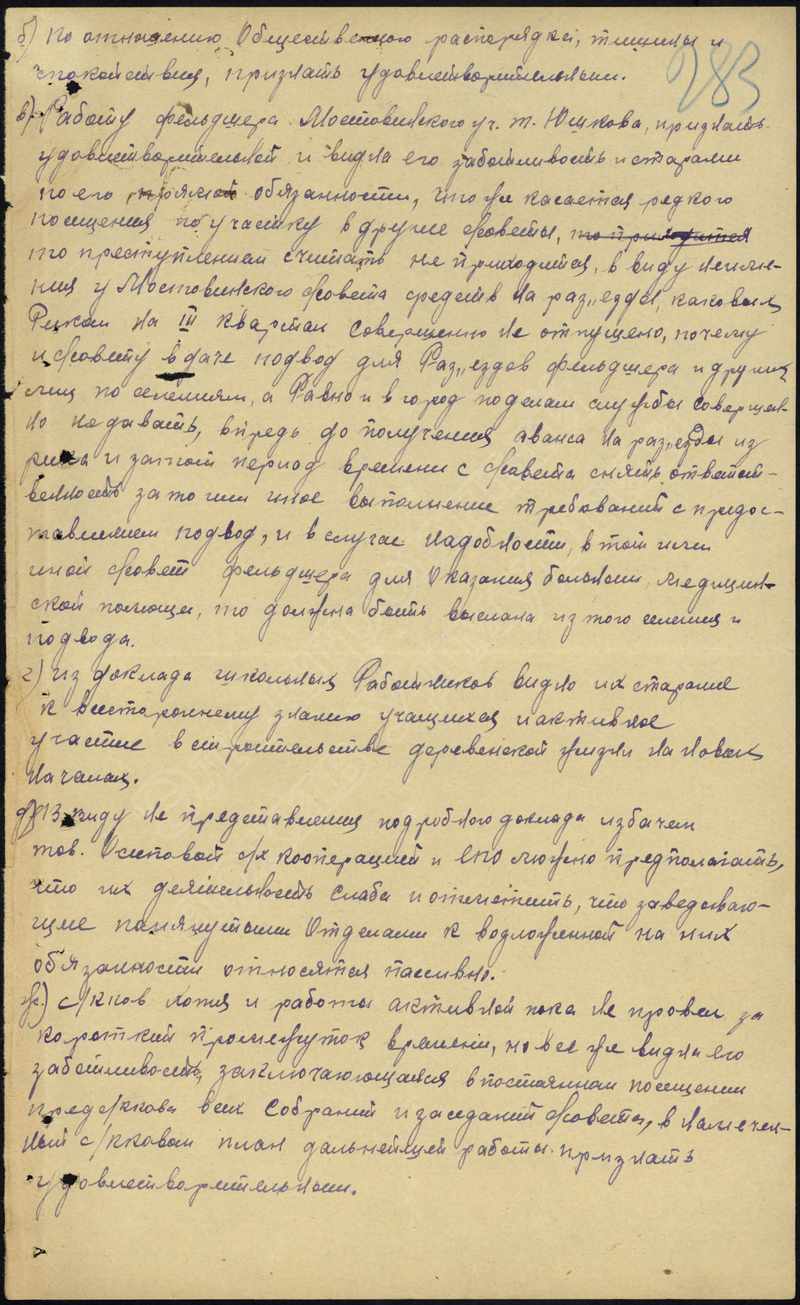 283
б) по отношению Общественного распорядка, тишины и
спокойствия, признать удовлетворительным.
в) Работу фельдшера Мостовинского уч. т. Юшкова, признать
удовлетворительной и видна его заботливость и старания
по его прямой обязанности, что же касается редкого
посещения по участку в другие советы, то приходится
то преступлением считать не приходится, в виду неиме-
ния у Мостовинского Совета средств на раз,,езды, каковых
Риком на III квартал совершенно не отпущено, почему
и совету в даче подвод для Раз,,ездов фельдшера и других
лиц по селениям, а Равно и в город по делам службы совершен-
но не давать, впредь до получения аванса на раз,,езды из
рика и за такой период времени с совета снять ответст-
венность за то или иное выполнение требований с предос-
тавлением подвод, и в случае надобности, в той или
иной совет фельдшера для Оказания больным, медицин-
ской помощи, то должна быть выслана из того селения и
подвода.
г) из доклада школьных Работников видно их старание
к всестороннему знанию учащихся и активное
участие в строительстве деревенской жизни на новых
началах.
д) В виду не представления подробного доклада избачем
тов. Осиповой с/х кооперацией и ЕПО можно предполагать,
что их деятельность слаба и отметить, что заведываю-
щие помянутыми Отделами к возложенной на них
обязанности относятся пассивно.
ж.) с/кков хотя и работы активной пока не провел за
короткий промежуток времени, но все же видна его
заботливость, заключающаяся в постоянном посещении
пред с/ккова всех Собраний и заседаний совета, в намечен-
ный с/кковом план дальнейшей работы признать
удовлетворительным.